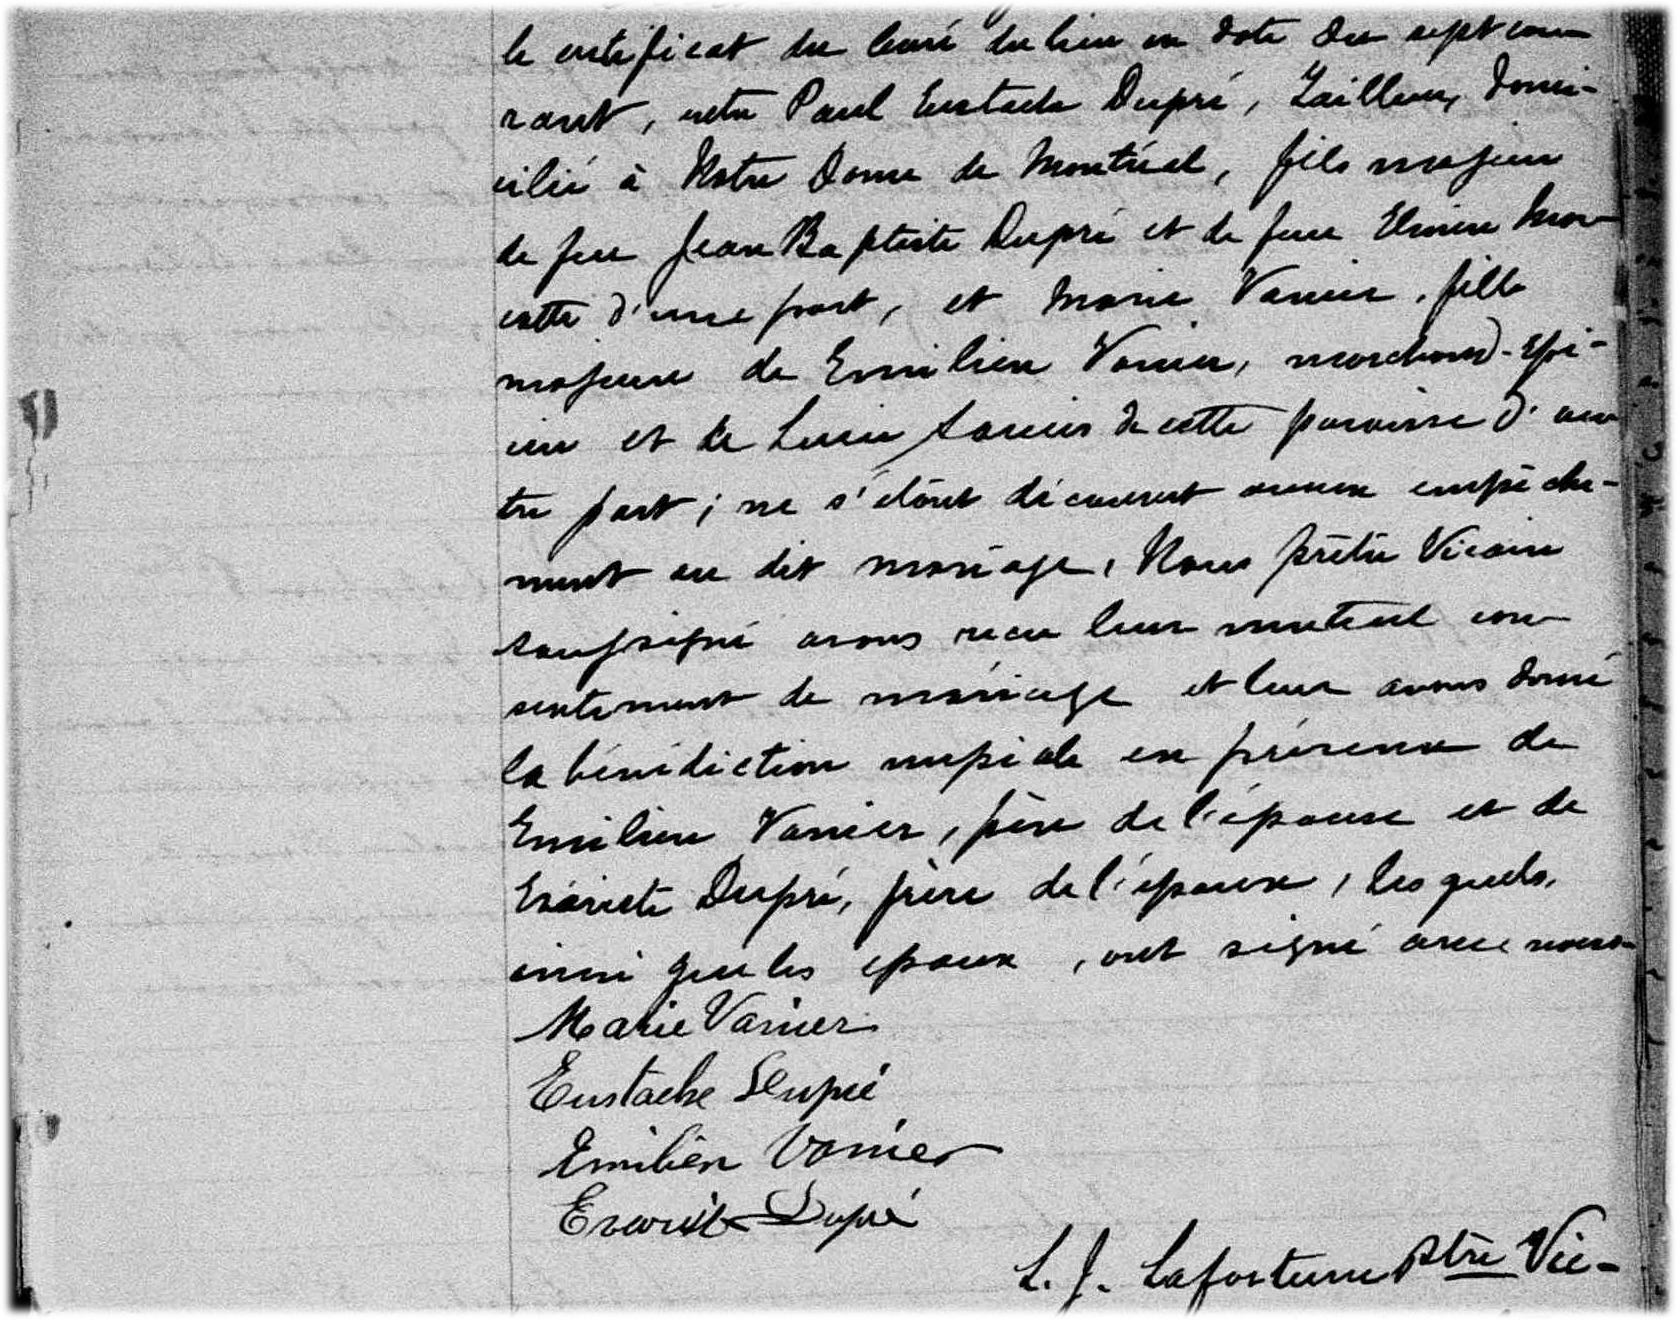 le certificat du Curé du lieu en date du sept cou-
rant, entre Paul Eustache Dupré, Tailleur, domi-
cilié à Notre Dame de Montréal, fils majeur
de feu Jean Baptiste Dupré et de feue
d'une part, et Marie Vanier, fille
majeure de Emilien Vanier, marchand-Epi-
cier et de Lucie de cette paroisse d'au-
tre part; ne s'étant découvert aucun empêche-
ment au dit mariage, Nous prêtre Vicaire
soussigné avons reçu leur mutuel con-
sentement de mariage et leur avons donné
la bénédiction nuptiale en présence de
Emilien Vanier, père de l'épouse et de
Evariste Dupré, frère de l'époux, lesquels,
ainsi que les époux, ont signé avec nous.
Marie Vanier
Eustache Dupré
Emilien Vanier
Evariste Dupré
L. J. Lafortune Ptre Vic-